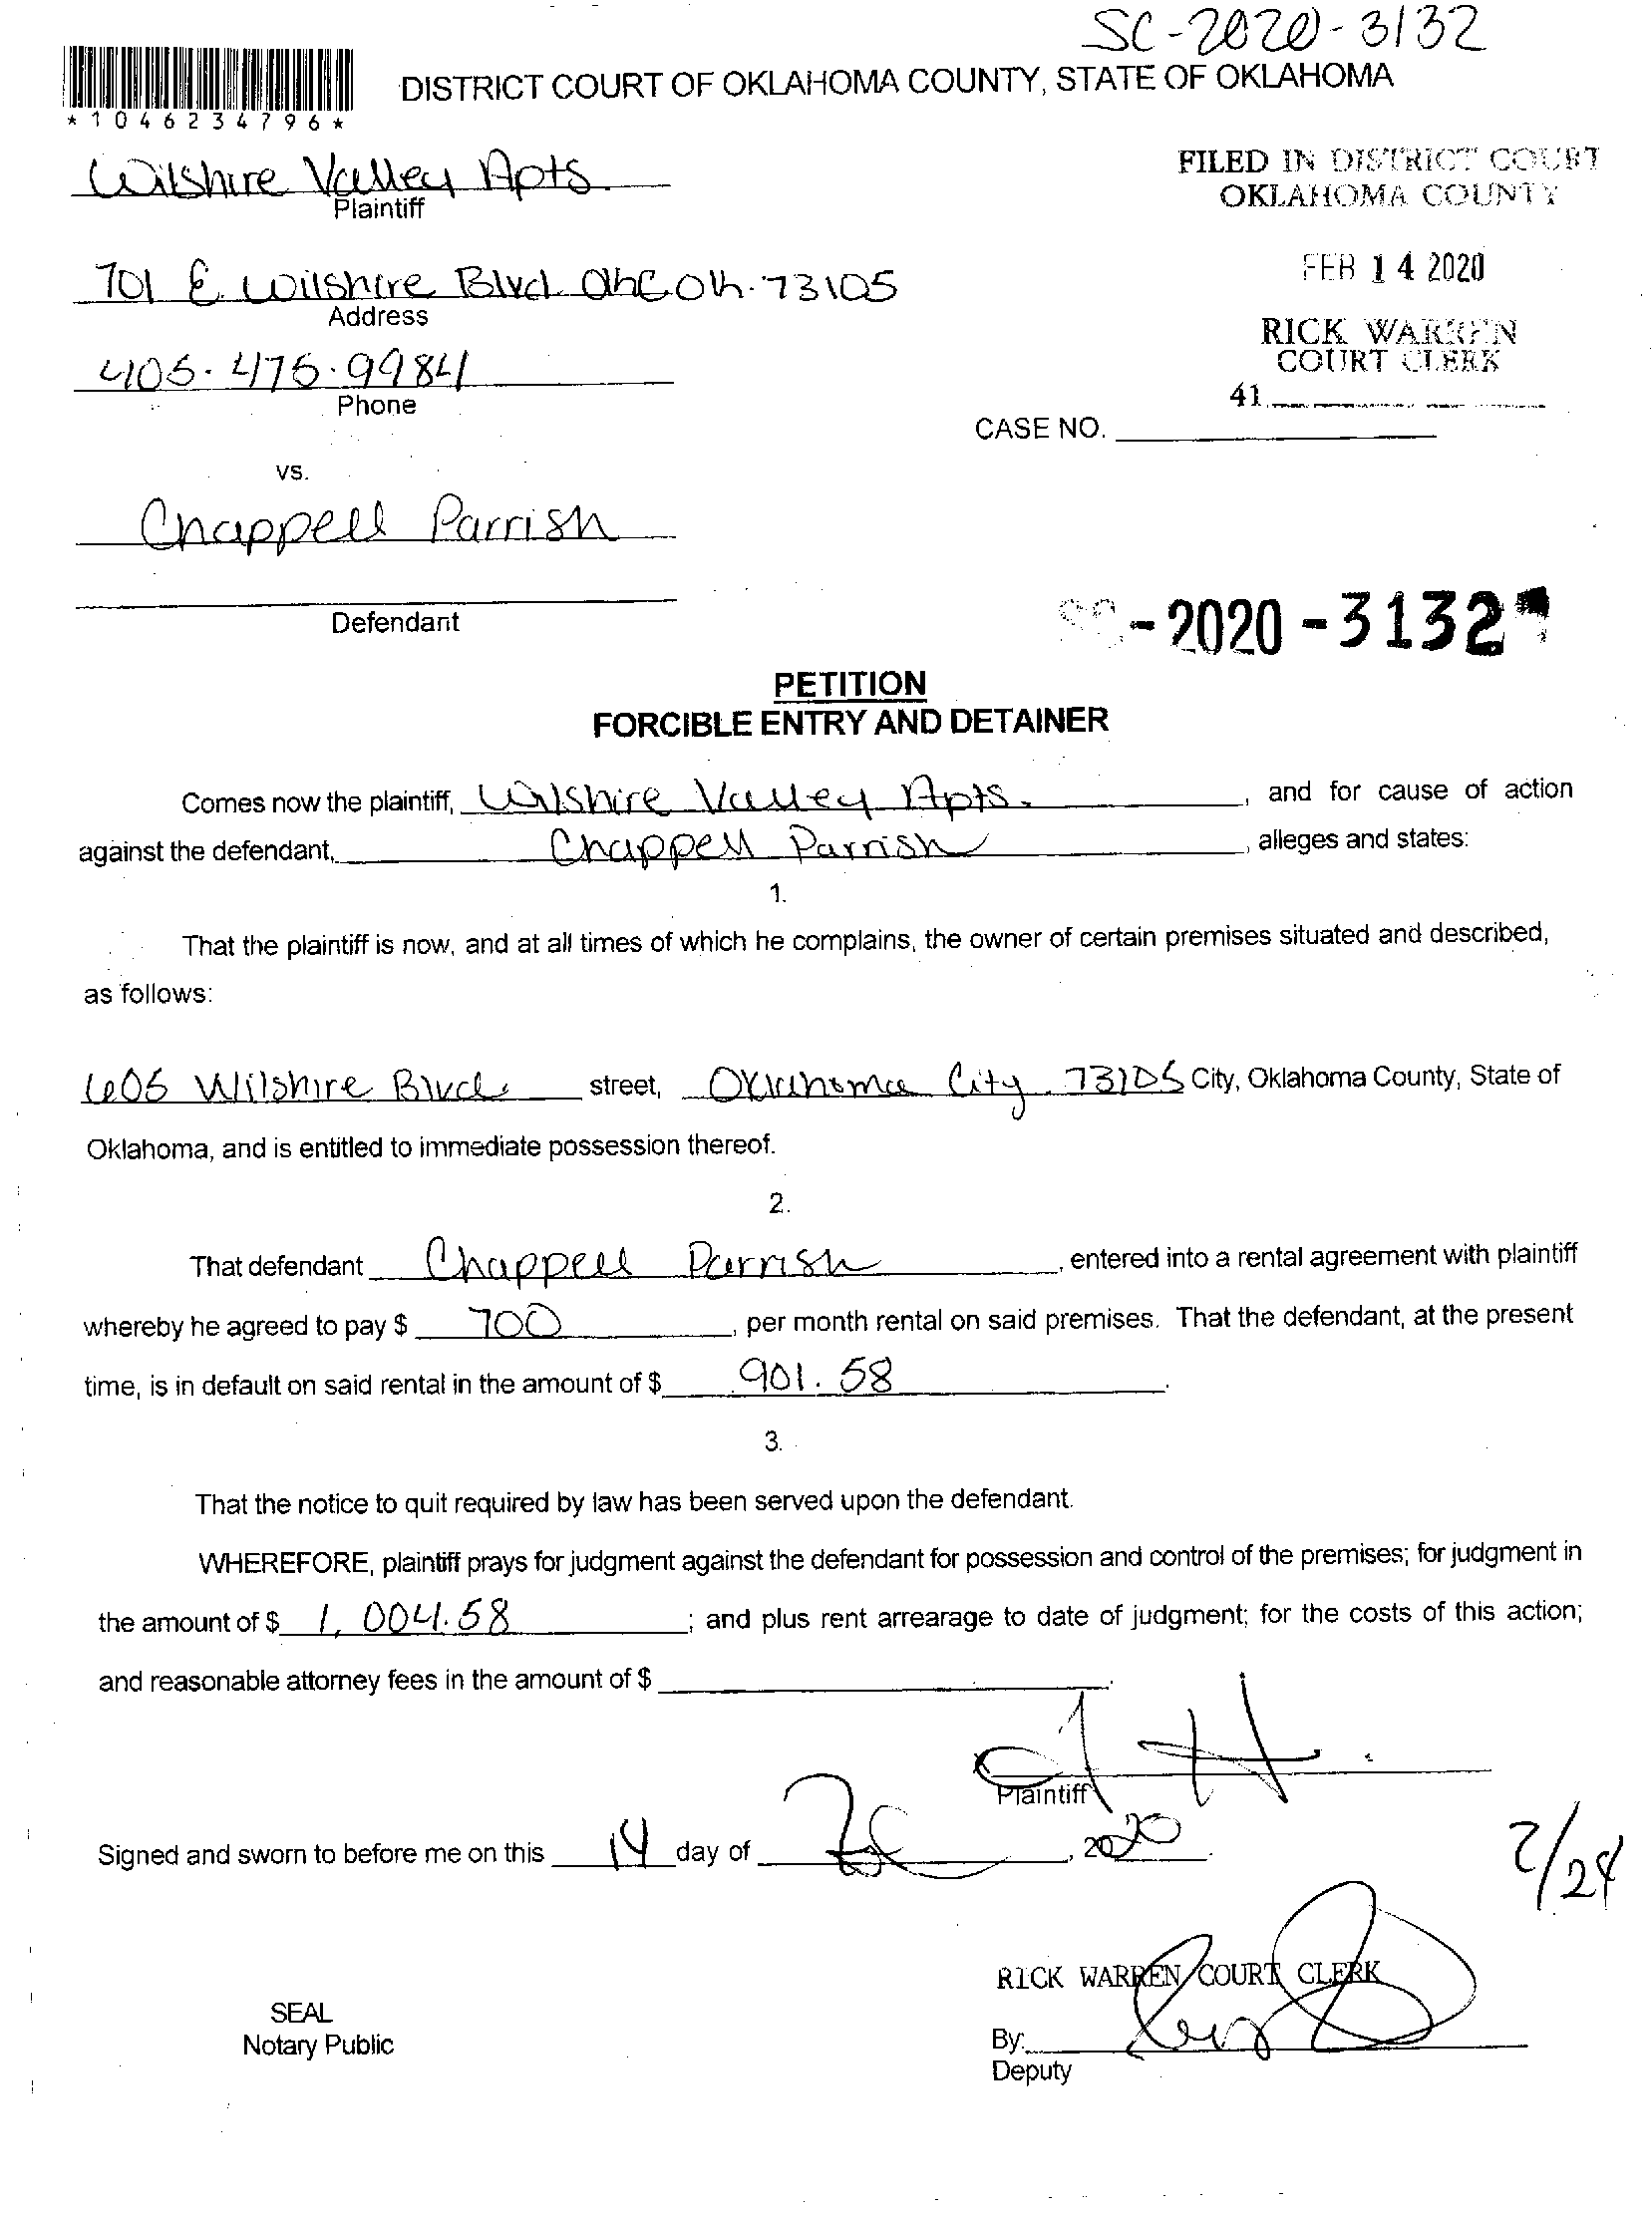 SC-2020-3132
*1046234796*
DISTRICT COURT OF OKLAHOMA COUNTY, STATE OF OKLAHOMA
Wilshire Valley Apts.
Plaintiff
FILED IN DISTRICT COURT
OKLAHOMA COUNTY
701 E. Wilshire Blvd OKC OK. 73105
Address
FEB 14 2020
RICK WARREN
COURT CLERK
405.475.9984
Phone
41
CASE NO.
vs.
Chappell Parrish
Defendant
SC-2020-3132
PETITION
FORCIBLE ENTRY AND DETAINER
Comes now the plaintiff, Wilshire Valley Apts. , and for cause of action
against the defendant, Chappell Parrish , alleges and states:
1.
That the plaintiff is now, and at all times of which he complains, the owner of certain premises situated and described,
as follows:
605 Wilshire Blvd. street, Oklahoma City 73105 City, Oklahoma County, State of
Oklahoma, and is entitled to immediate possession thereof.
2.
That defendant Chappell Parrish , entered into a rental agreement with plaintiff
whereby he agreed to pay $ 700 , per month rental on said premises. That the defendant, at the present
time, is in default on said rental in the amount of $ 901.58 .
3.
That the notice to quit required by law has been served upon the defendant.
WHEREFORE, plaintiff prays for judgment against the defendant for possession and control of the premises; for judgment in
the amount of $ 1,004.58 ; and plus rent arrearage to date of judgment; for the costs of this action;
and reasonable attorney fees in the amount of $ .
Plaintiff
Signed and sworn to before me on this 14 day of , 2020.
2/24
RICK WARREN COURT CLERK
SEAL
Notary Public
By:
Deputy